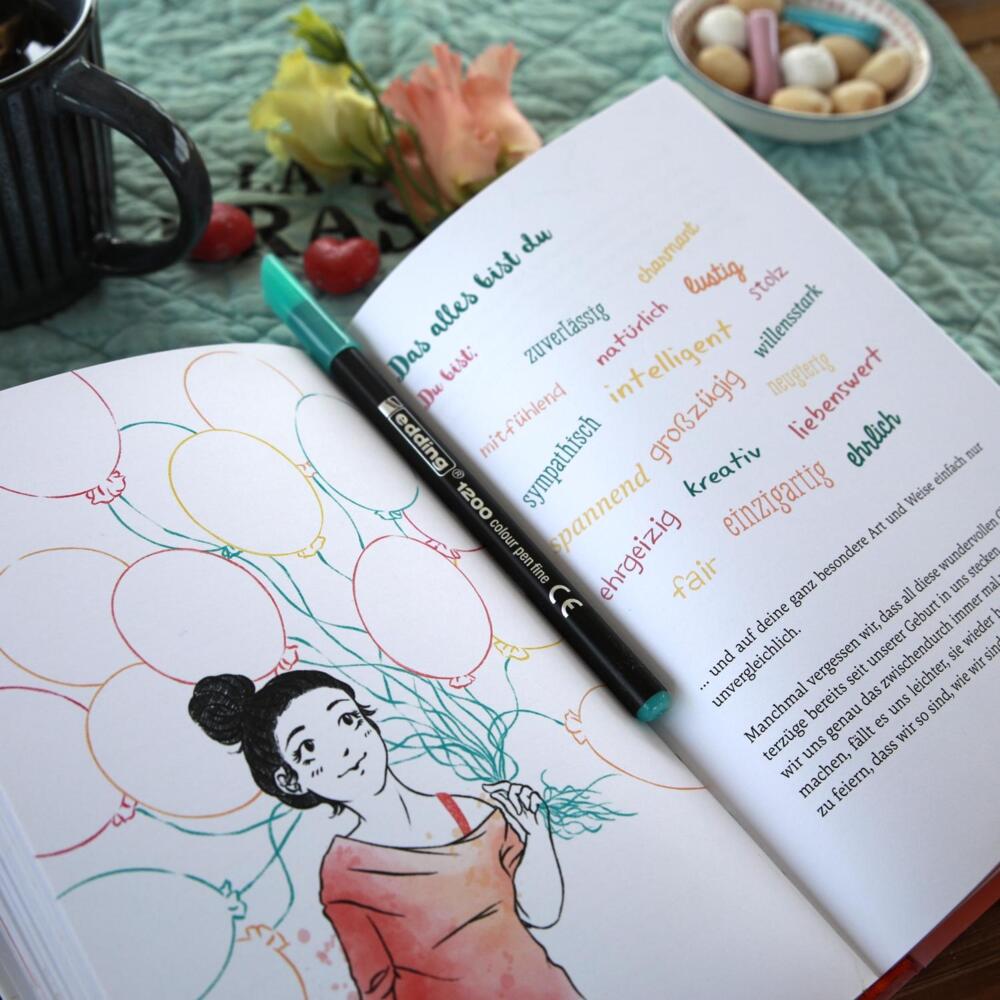 Das alles bist du
Du bist:
zuverlässig
charmant
mitfühlend
natürlich
lustig
stolz
sympathisch
intelligent
willensstark
spannend
großzügig
neugierig
ehrgeizig
kreativ
liebenswert
fair
einzigartig
ehrlich
... und auf deine ganz besondere Art und Weise einfach nur
unvergleichlich.
Manchmal vergessen wir, dass all diese wundervollen
terzüge bereits seit unserer Geburt in uns stecken
wir uns genau das zwischendurch immer mal
machen, fällt es uns leichter, sie wieder
zu feiern, dass wir so sind, wie wir
edding® 1200 colour pen fine CE
LA